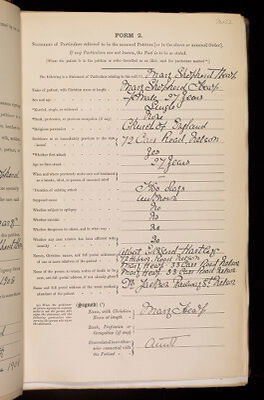 FORM 2.
Statement of Particulars referred to in the annexed Petition [or in the above or annexed Order].
If any Particulars are not known, the Fact is to be so stated.
[Where the patient is in the petition or order described as an idiot, omit the particulars marked *.]
The following is a Statement of Particulars relating to the said Mary Shepherd Heap
Name of patient, with Christian name at length Mary Shepherd Heap
Sex and age Female 27 Years
*Married, single, or widowed Single
*Rank, profession, or previous occupation (if any) None
*Religious persuasion Church of England
Residence at or immediately previous to the date hereof 72 Carr Road Nelson
*Whether first attack Yes
Age on first attack 27 Years
When and where previously under care and treatment as a lunatic, idiot, or person of unsound mind
*Duration of existing attack Two days
Supposed cause Unknown
Whether subject to epilepsy No
Whether suicidal No
Whether dangerous to others, and in what way No
Whether any near relative has been afflicted with insanity No
Names, Christian names, and full postal addresses of one or more relatives of the patient
Carr Road Nelson
Mary Heap 33 Carr Road Nelson
Name of the person to whom notice of death to be sent, and full postal address, if not already given Mary Heap 33 Carr Road Nelson
Name and full postal address of the usual medical attendant of the patient Dr Jackson Railway St Nelson
(Signed) (*)
Name, with Christian Name at length Mary Heap
Rank, Profession or Occupation (if any)
How related to or otherwise connected with the Patient Aunt